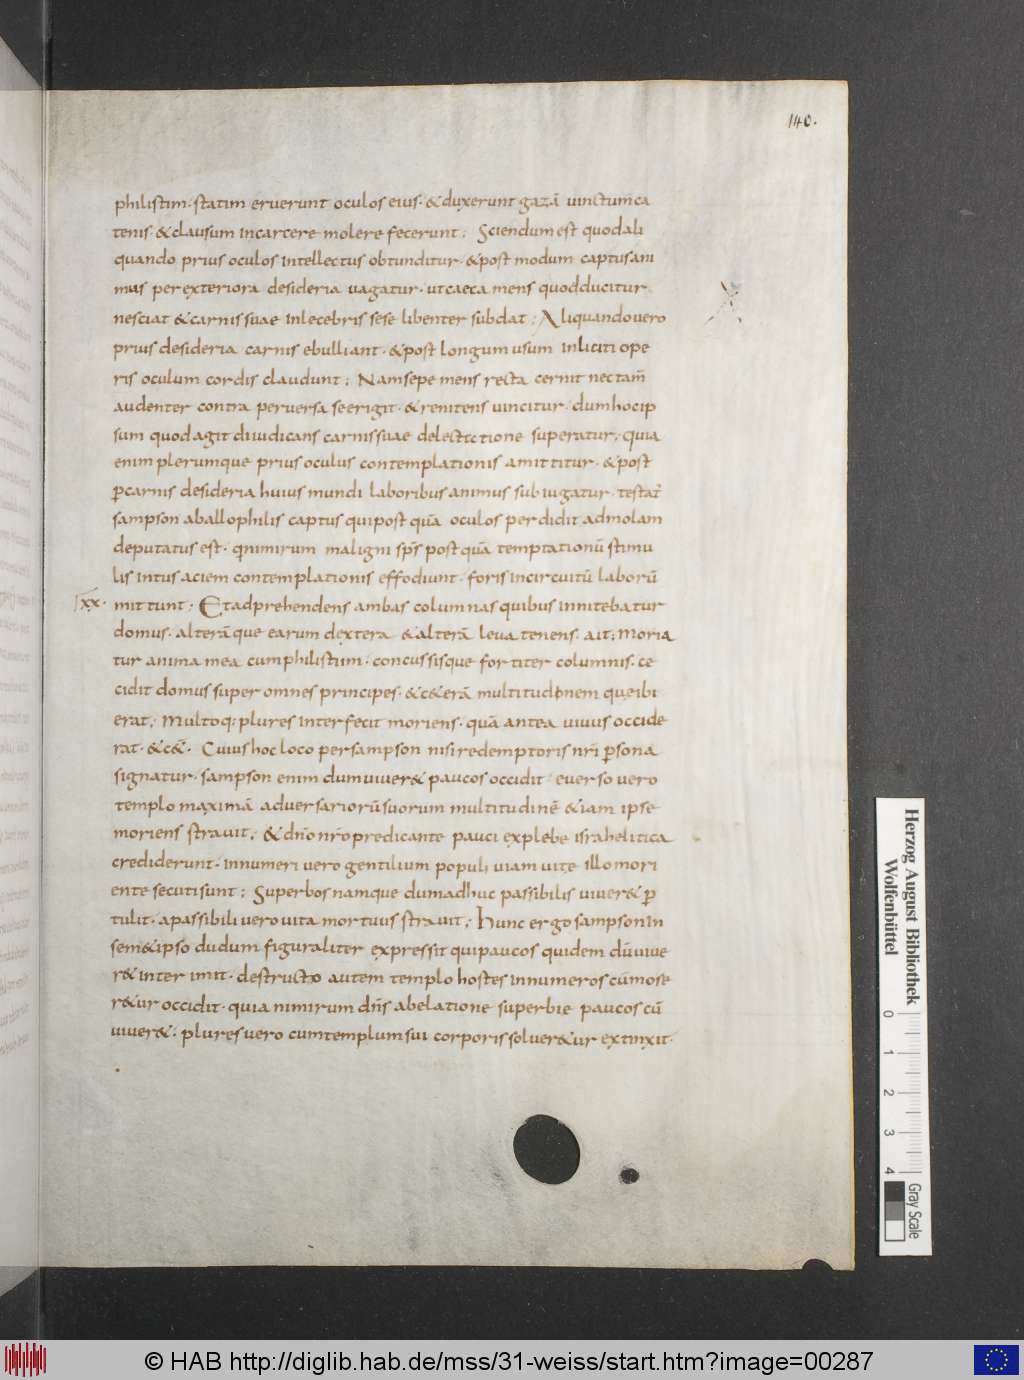 140.
philistim. statim eruerunt oculos eius. & duxerunt gazā uinctum ca
tenis & clausum in carcere molere fecerunt; Sciendum est quod ali
quando prius oculos intellectus obtunditur & post modum captus ani
mus per exteriora desideria uagatur. ut caeca mens quod ducitur
nesciat & carnis suae inlecebris sese libenter subdat; Aliquando uero
prius desideria carnis ebulliant. & post longum usum inliciti ope
ris oculum cordis claudunt; Nam sepe mens recta cernit nec tam̄
audenter contra peruersa se erigit. & renitens uincitur. dum hoc ip
sum quod agit diiudicans carnis suae delectatione superatur; quia
enim plerumque prius oculus contemplationis amittitur. & post
ꝑ carnis desideria huius mundi laboribus animus subiugatur. testat̄
sampson ab allophilis captus qui post quā oculos perdidit ad molam
deputatus est. q nimirum maligni sp̄s post quā temptationū stimu
lis intus aciem contemplationis effodiunt. foris in circuitū laborū
xx. mittunt; Et adprehendens ambas columnas quibus innitebatur
domus. alterāque earum dextera & alterā leua tenens. ait; Moria
tur anima mea cum philistiim. concussisque fortiter columnis. ce
cidit domus super omnes principes. & c&erā multitudinem quę ibi
erat; Multoq; plures interfecit moriens. quā antea uiuus occide
rat. & c&. Cuius hoc loco per sampson nisi redemptoris nr̄i ꝑsona
signatur. sampson enim dum uiuer& paucos occidit. euerso uero
templo maximā aduersariorū suorum multitudinē & iam ipse
moriens strauit; & dn̄o nr̄o predicante pauci ex plebe israhelitica
crediderunt. innumeri uero gentilium populi uiam uitę illo mori
ente secuti sunt; Superbos namque dum adhuc passibilis uiuer& ꝑ
tulit. a passibili uero uita mortuus strauit; Hunc ergo sampson in
sem&ipso dudum figuraliter expressit qui paucos quidem dū uiue
r& interimit. destructo autem templo hostes innumeros cū mose
r&ur occidit. quia nimirum dn̄s ab elatione superbie paucos cū
uiuer&; plures uero cum templum sui corporis soluer&ur extinxit.
Herzog August Bibliothek
Wolfenbüttel
0 1 2 3 4
Gray Scale
© HAB http://diglib.hab.de/mss/31-weiss/start.htm?image=00287